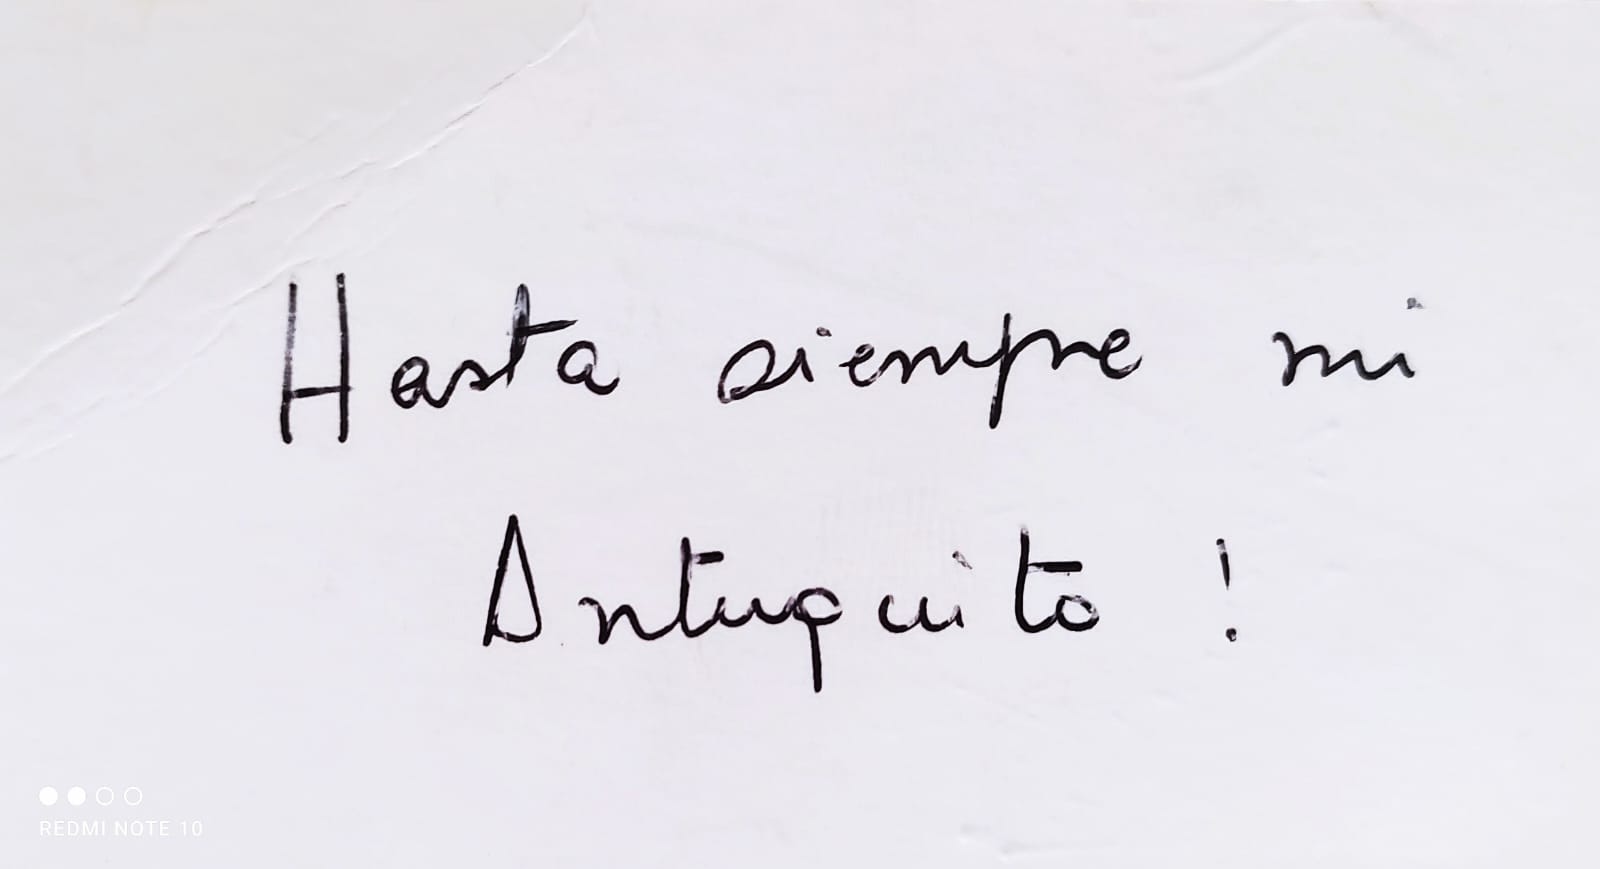 Hasta siempre mi
Antuquito !
REDMI NOTE 10